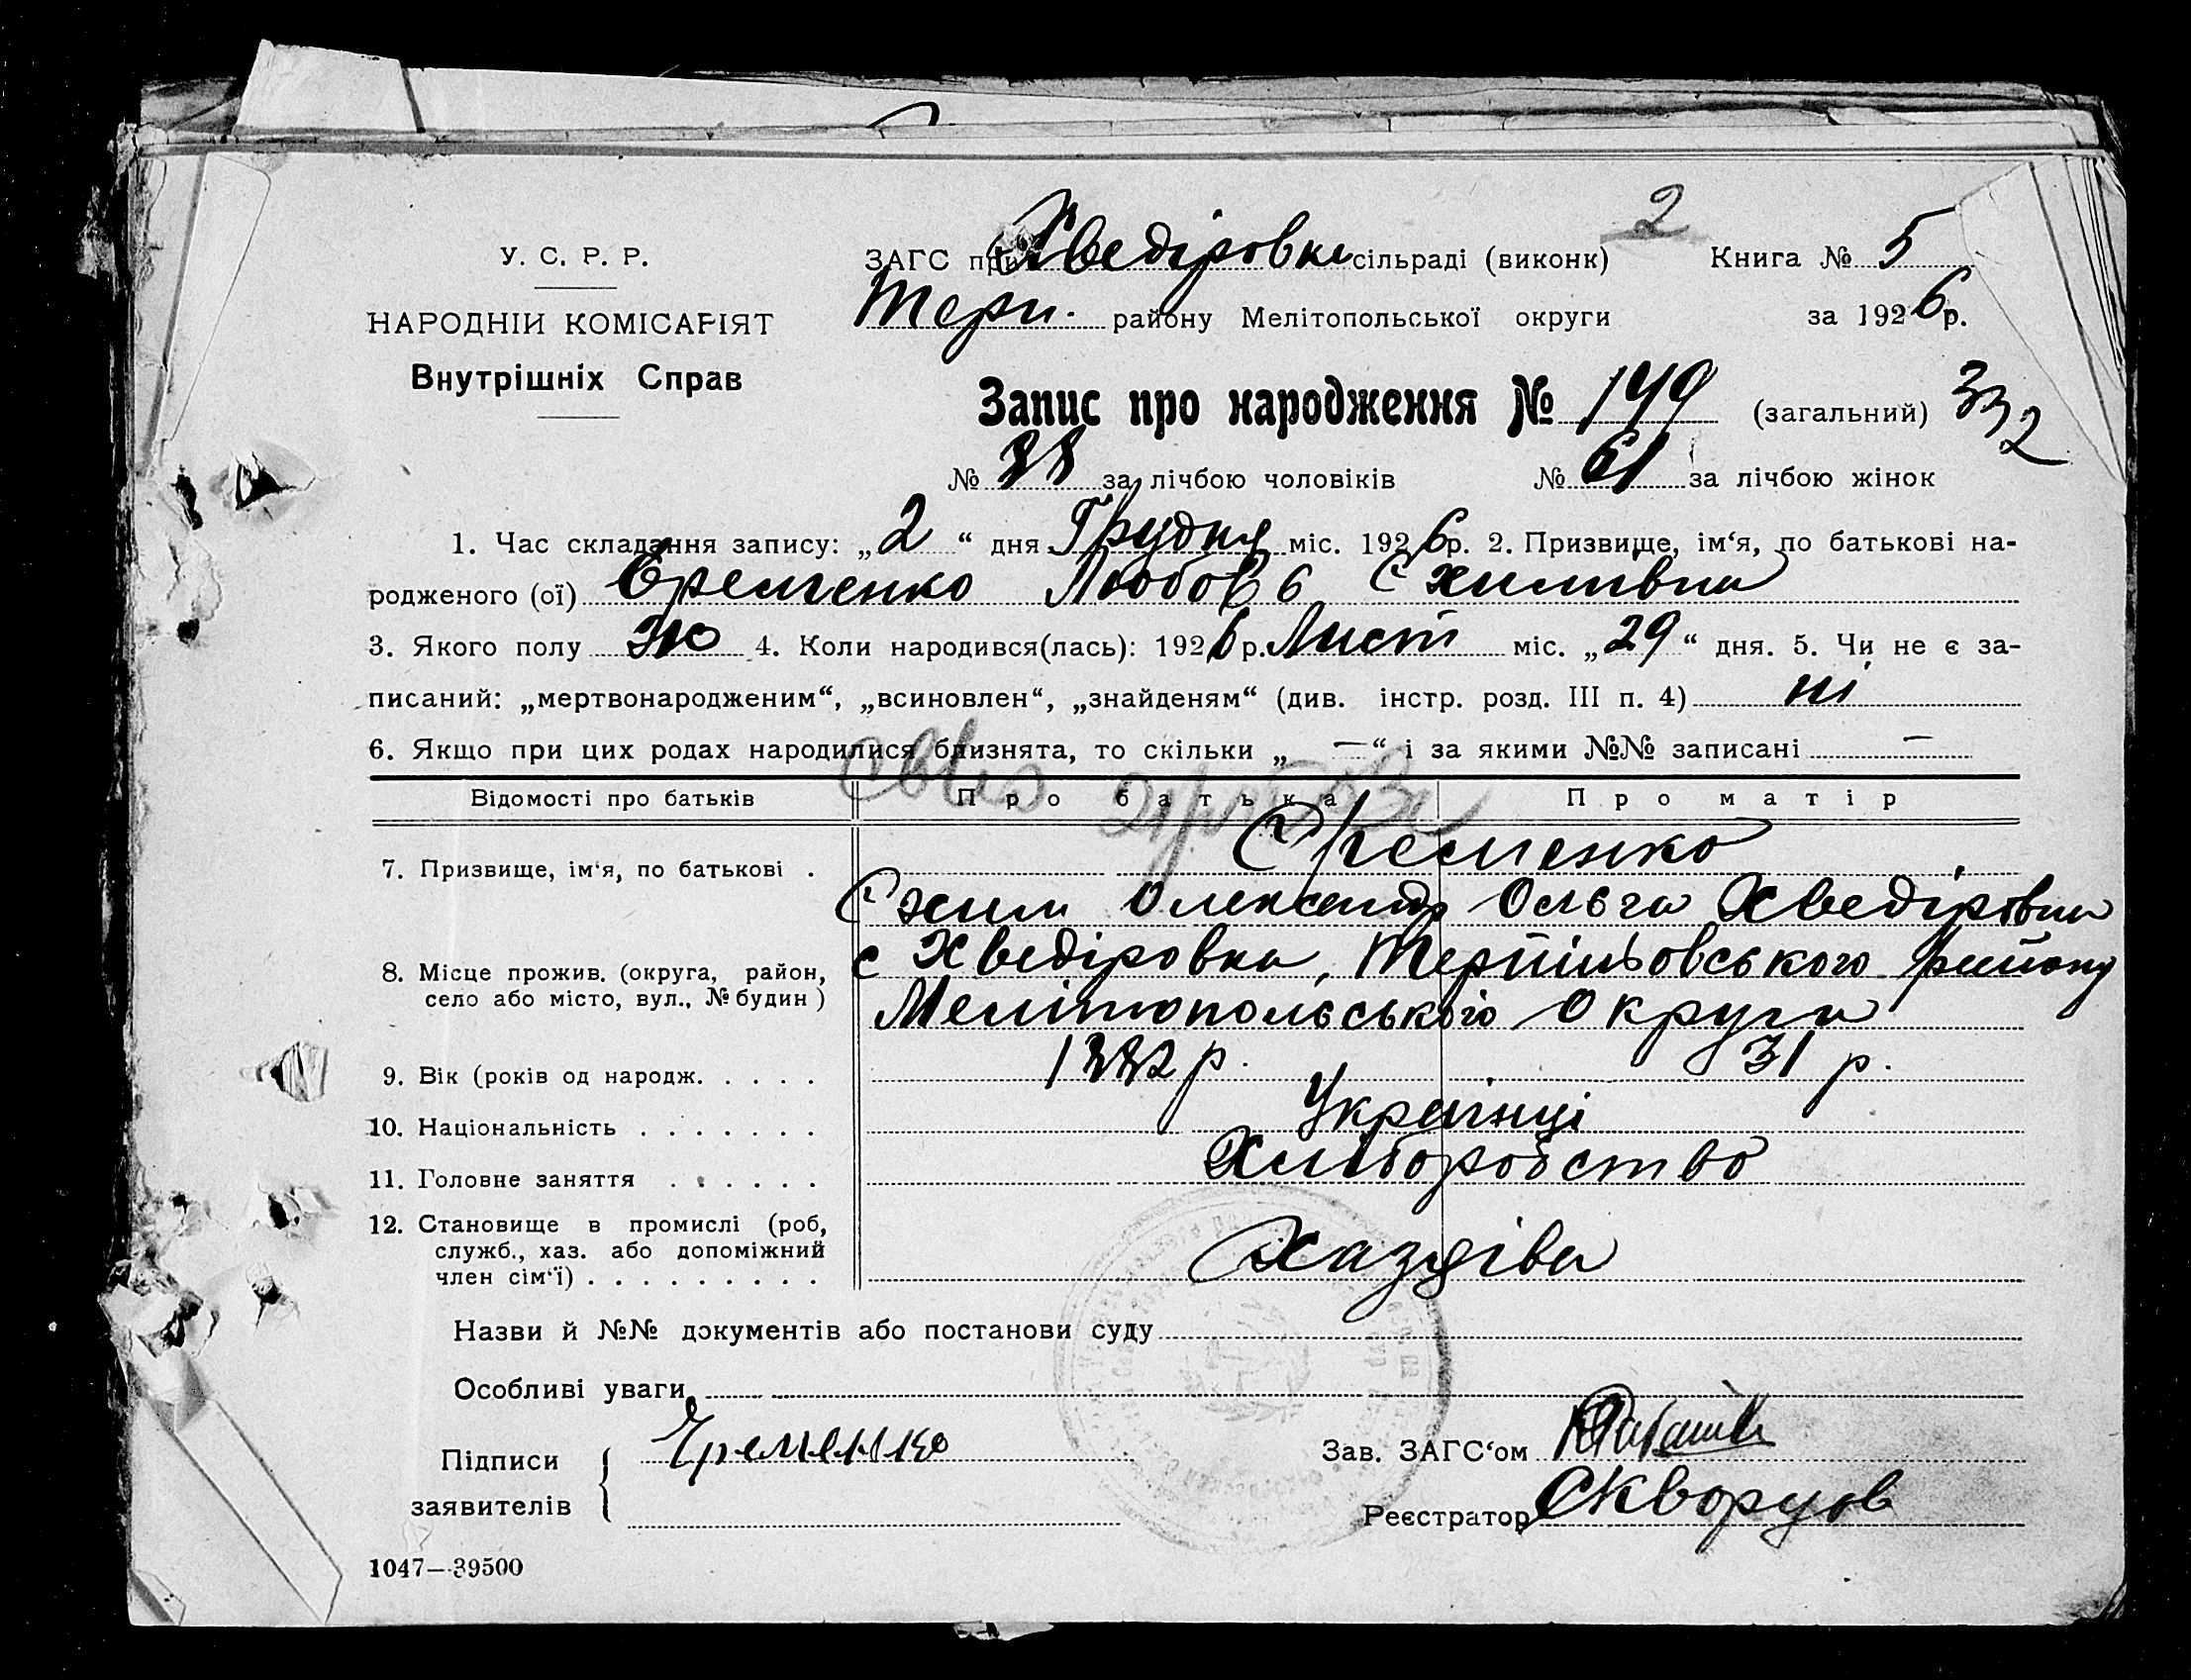 2
У. С. Р. Р.
ЗАГС при Хведіровка сільраді (виконк) Книга № 5
НАРОДНІИ КОМІСАРІЯТ
Терп. району Мелітопольської округи за 1926 р.
Внутрішніх Справ
Запис про народження № 149 (загальний) 332
№ 88 за лічбою чоловіків № 61 за лічбою жінок
1. Час складання запису: „2“ дня Грудня міс. 1926 р. 2. Призвище, імʼя, по батькові на-
родженого (ої) Єременко Любовь Єхимівна
3. Якого полу жо 4. Коли народився(лась): 1926 р. Лист міс. „29“ дня. 5. Чи не є за-
писаний: „мертвонародженим“, „всиновлен“, „знайденям“ (див. інстр. розд. III п. 4) ні
6. Якщо при цих родах народилися близнята, то скільки „ — “ і за якими №№ записані —
Відомості про батьків Про батька Про матір
7. Призвище, ім‘я, по батькові . Єременко
Єхим Олександр Ольга Хведіровна
8. Місце прожив. (округа, район, с Хведіровка, Терпіньовського району
село або місто, вул., № будин) Мелітопольського Округа
9. Вік (років од народж. . . . . 1882 р. 31 р.
10. Національність . . . . . . . Українці
11. Головне заняття . . . . . . Хліборобство
12. Становище в промислі (роб,
служб., хаз. або допоміжний Хазяїва
член сім‘ї) . . . . . . . . .
Назви й №№ документів або постанови суду
Особливі уваги
Підписи Єременко Зав. ЗАГС‘ом
заявителів Реєстратор Скворцов
1047—39500